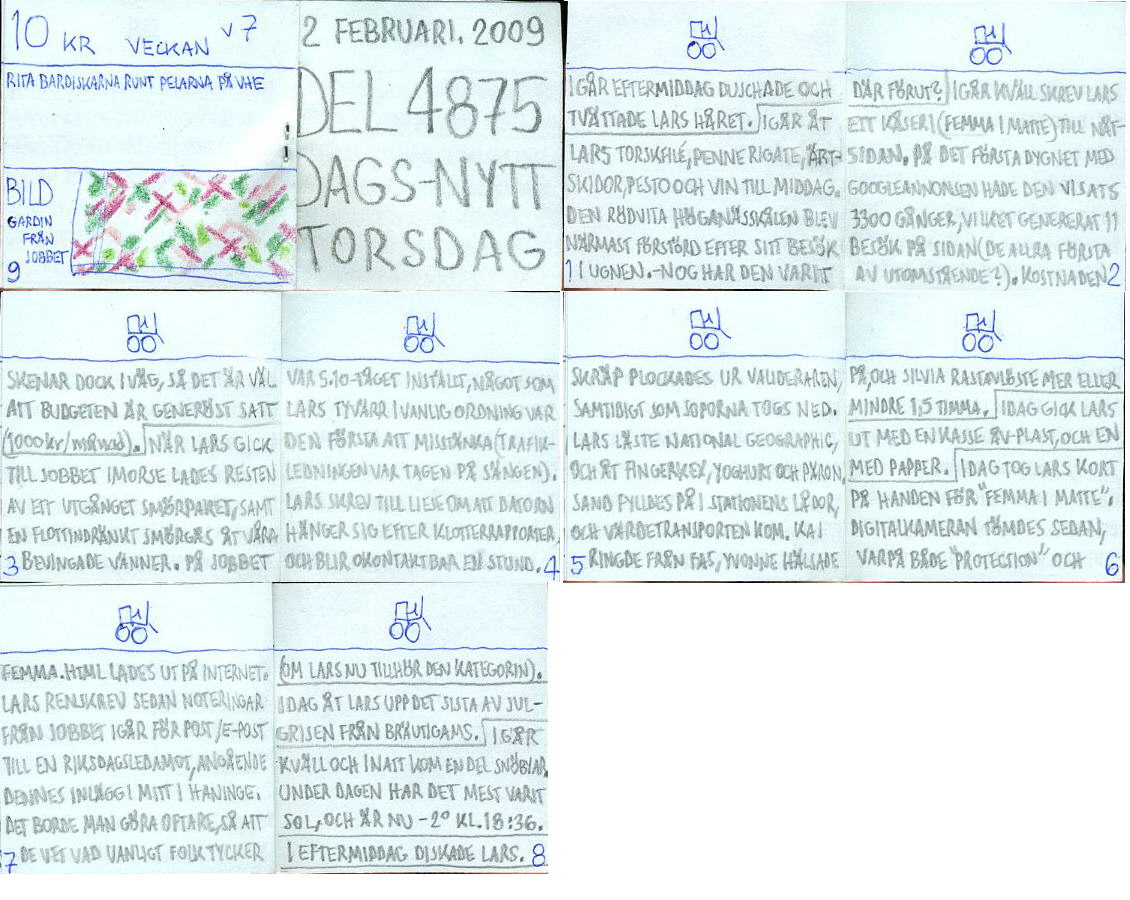 10 KR VECKAN V 7
RITA BARDISKARNA RUNT PELARNA PÅ VHE
BILD
GARDIN
FRÅN
JOBBET
9
2 FEBRUARI. 2009
DEL 4875
DAGS-NYTT
TORSDAG
IGÅR EFTERMIDDAG DUSCHADE OCH
TVÄTTADE LARS HÅRET. IGÅR ÅT
LARS TORSKFILÉ, PENNE RIGATE, ÄRT-
SKIDOR, PESTO OCH VIN TILL MIDDAG.
DEN RÖDVITA HÖGANÄSSKÅLEN BLEV
NÄRMAST FÖRSTÖRD EFTER SITT BESÖK
1 I UGNEN. -NOG HAR DEN VARIT
DÄR FÖRUT? IGÅR KVÄLL SKREV LARS
ETT KÅSERI (FEMMA I MATTE) TILL NÄT-
SIDAN. PÅ DET FÖRSTA DYGNET MED
GOOGLEANNONSEN HADE DEN VISATS
3300 GÅNGER, VILKET GENERERAT 11
BESÖK PÅ SIDAN (DE ALLRA FÖRSTA
AV UTOMSTÅENDE?). KOSTNADEN 2
SKENAR DOCK IVÄG, SÅ DET ÄR VÄL
ATT BUDGETEN ÄR GENERÖST SATT
(1000kr/månad). NÄR LARS GICK
TILL JOBBET IMORSE LADES RESTEN
AV ETT UTGÅNGET SMÖRPAKET, SAMT
EN FLOTTINDRÄNKT SMÖRGÅS ÅT VÅRA
3 BEVINGADE VÄNNER. PÅ JOBBET
VAR 5.10-TÅGET INSTÄLLT, NÅGOT SOM
LARS TYVÄRR I VANLIG ORDNING VAR
DEN FÖRSTA ATT MISSTÄNKA (TRAFIK-
LEDNINGEN VAR TAGEN PÅ SÄNGEN).
LARS SKREV TILL LIESE OM ATT DATORN
HÄNGER SIG EFTER KLOTTERRAPPORTER,
OCH BLIR OKONTAKTBAR EN STUND. 4
SKRÄP PLOCKADES UR VALIDERAREN,
SAMTIDIGT SOM SOPORNA TOGS NED.
LARS LÄSTE NATIONAL GEOGRAPHIC,
OCH ÅT FINGERKEX, YOGHURT OCH PÄRON.
SAND FYLLDES PÅ I STATIONENS LÅDOR,
OCH VÄRDETRANSPORTEN KOM. KAI
5 RINGDE FRÅN FAS, YVONNE HÄLSADE
PÅ, OCH SILVIA RASTAVLÖSTE MER ELLER
MINDRE 1,5 TIMMA. IDAG GICK LARS
UT MED EN KASSE ÅV-PLAST, OCH EN
MED PAPPER. IDAG TOG LARS KORT
PÅ HANDEN FÖR "FEMMA I MATTE".
DIGITALKAMERAN TÖMDES SEDAN,
VARPÅ BÅDE "PROTECTION" OCH 6
FEMMA.HTML LADES UT PÅ INTERNET.
LARS RENSKREV SEDAN NOTERINGAR
FRÅN JOBBET IGÅR FÖR POST/E-POST
TILL EN RIKSDAGSLEDAMOT, ANGÅENDE
DENNES INLÄGG I MITT I HANINGE.
DET BORDE MAN GÖRA OFTARE, SÅ ATT
7 DE VET VAD VANLIGT FOLK TYCKER
(OM LARS NU TILLHÖR DEN KATEGORIN).
IDAG ÅT LARS UPP DET SISTA AV JUL-
GRISEN FRÅN BRÄUTIGAMS. IGÅR
KVÄLL OCH INATT KOM EN DEL SNÖBYAR.
UNDER DAGEN HAR DET MEST VARIT
SOL, OCH ÄR NU -2° KL.18:36.
I EFTERMIDDAG DISKADE LARS. 8